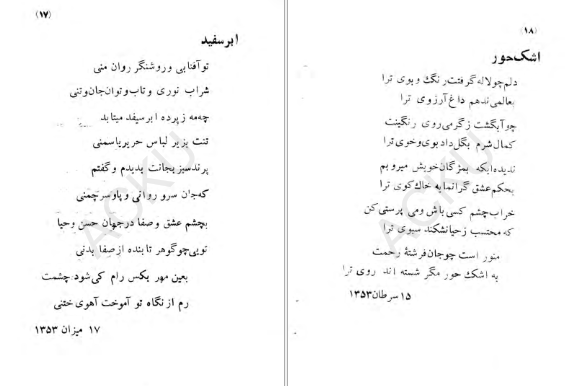 (۱۷)
ابر سفید
تو آفتابی و روشنگر روان منی
شراب نوری و تاب و توان جان و تنی
چه مه ز پرده ابر سفید میتابد
تنت بزیر لباس حریر یاسمنی
پرند سبز بجانت بدیدم و گفتم
که جان سرو روانی و یا و سرچمنی
بچشم عشق و صفا در جهان حسن و حیا
تویی چو گوهر تابنده از صفا بدنی
بعین مهر بکس رام کی شود چشمت
رم از نگاه تو آموخت آهوی ختنی
۱۷ میزان ۱۳۵۳
(۱۸)
اشک حور
دلم چو لاله گرفتت رنگ و بوی ترا
بعالمی ندهم داغ آرزوی ترا
چو آبگشت ز گرمی روی رنگینت
کمال شرم بگل داد بوی و خوی ترا
ندیده ایکه بمژگان خویش میروبم
بحکم عشق گرانمایه خاک کوی ترا
خراب چشم کسی باش و می پرستی کن
که محتسب ز حیا نشکند سبوی ترا
منور است چو جان فرشتهٔ رحمت
به اشک حور مگر شسته اند روی ترا
۱۵ سرطان ۱۳۵۳
ACKU
ACKU